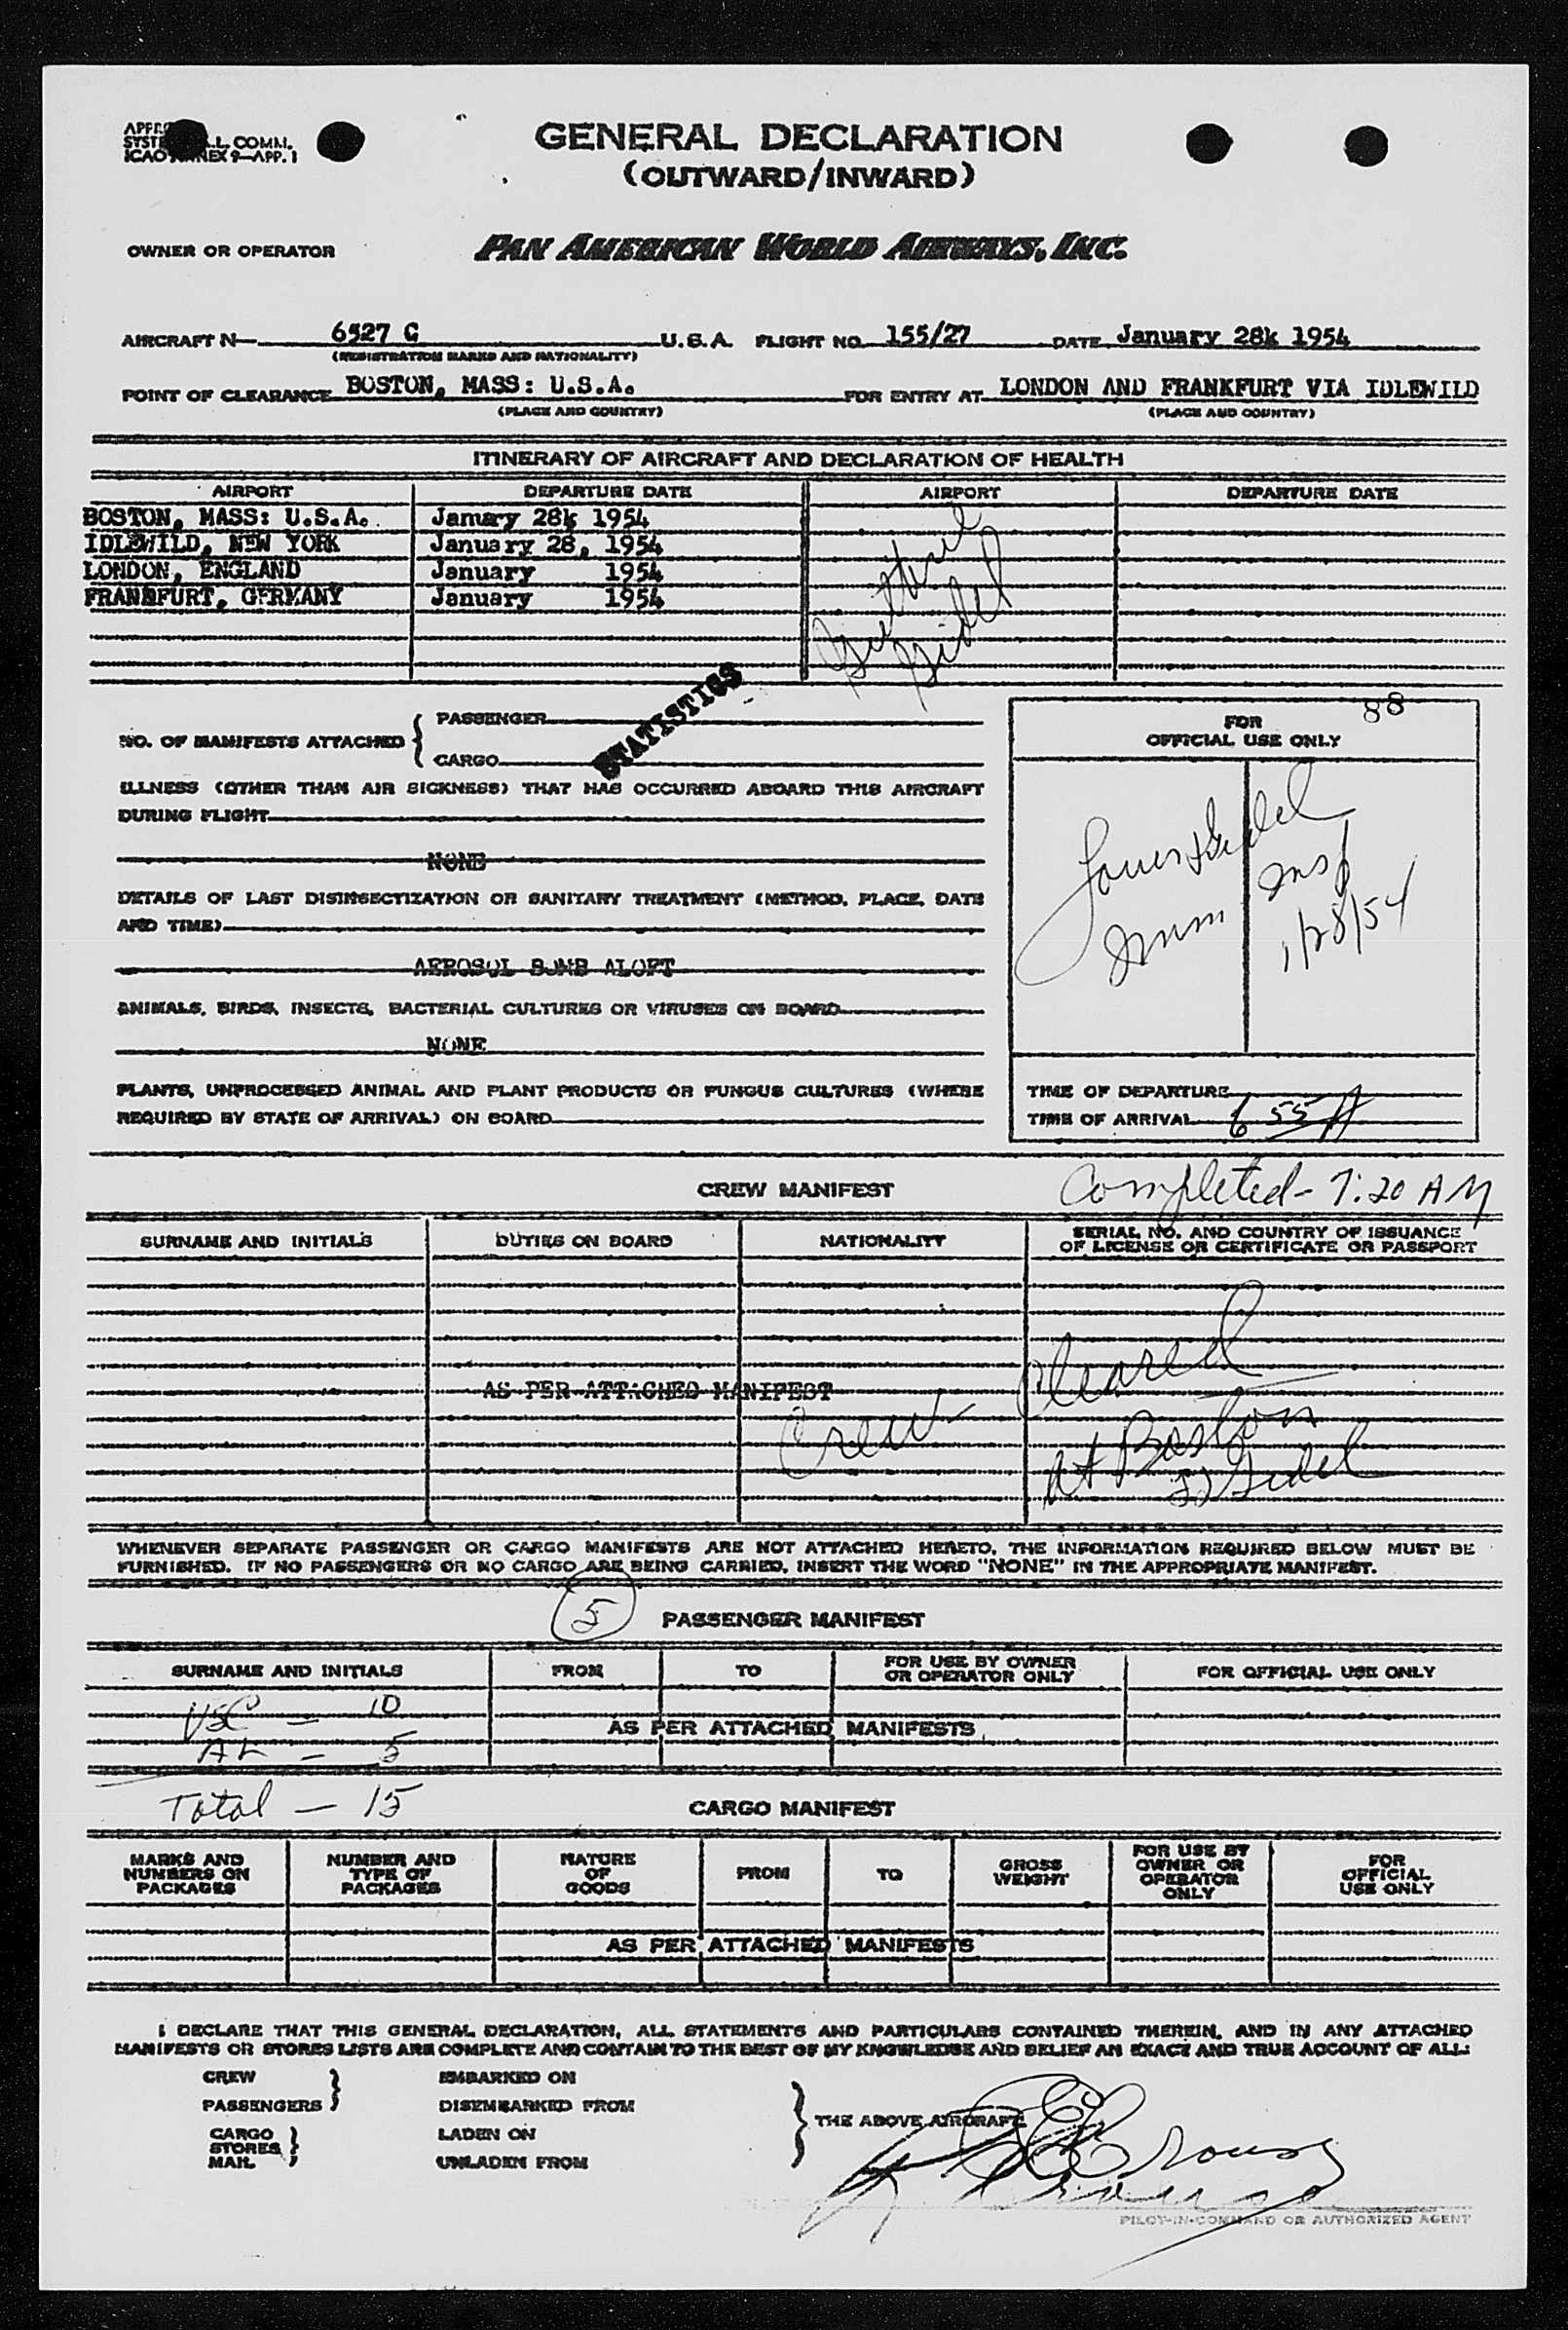 GENERAL DECLARATION
(OUTWARD/INWARD)
L. COMM.
ICAO ANNEX 9—APP. 1
OWNER OR OPERATOR PAN AMERICAN WORLD AIRWAYS, INC.
AIRCRAFT N— 6527 C U.S.A. FLIGHT NO. 155/27 DATE January 28k 1954
(REGISTRATION MARKS AND NATIONALITY)
POINT OF CLEARANCE BOSTON, MASS: U.S.A. FOR ENTRY AT LONDON AND FRANKFURT VIA IDLEWILD
(PLACE AND COUNTRY) (PLACE AND COUNTRY)
ITINERARY OF AIRCRAFT AND DECLARATION OF HEALTH
AIRPORT DEPARTURE DATE AIRPORT DEPARTURE DATE
BOSTON, MASS: U.S.A. January 28k 1954
IDLEWILD, NEW YORK January 28, 1954
LONDON, ENGLAND January 1954
FRANKFURT, GERMANY January 1954
STATISTICS
NO. OF MANIFESTS ATTACHED { PASSENGER
CARGO
88
FOR
OFFICIAL USE ONLY
ILLNESS (OTHER THAN AIR SICKNESS) THAT HAS OCCURRED ABOARD THIS AIRCRAFT
DURING FLIGHT
NONE
DETAILS OF LAST DISINSECTIZATION OR SANITARY TREATMENT (METHOD, PLACE, DATE
AND TIME)
AEROSOL BOMB ALOFT
ANIMALS, BIRDS, INSECTS, BACTERIAL CULTURES OR VIRUSES ON BOARD
NONE
PLANTS, UNPROCESSED ANIMAL AND PLANT PRODUCTS OR FUNGUS CULTURES (WHERE
REQUIRED BY STATE OF ARRIVAL) ON BOARD
Imm Insp
1/28/54
TIME OF DEPARTURE
TIME OF ARRIVAL 6 55 A
CREW MANIFEST
Completed - 7:20 AM
SURNAME AND INITIALS DUTIES ON BOARD NATIONALITY SERIAL NO. AND COUNTRY OF ISSUANCE
OF LICENSE OR CERTIFICATE OR PASSPORT
AS PER ATTACHED MANIFEST
Crew Cleared
At Boston
WHENEVER SEPARATE PASSENGER OR CARGO MANIFESTS ARE NOT ATTACHED HERETO, THE INFORMATION REQUIRED BELOW MUST BE
FURNISHED. IF NO PASSENGERS OR NO CARGO ARE BEING CARRIED, INSERT THE WORD "NONE" IN THE APPROPRIATE MANIFEST.
5 PASSENGER MANIFEST
SURNAME AND INITIALS FROM TO FOR USE BY OWNER
OR OPERATOR ONLY FOR OFFICIAL USE ONLY
USC — 10
AS PER ATTACHED MANIFESTS
AL — 5
Total — 15
CARGO MANIFEST
MARKS AND
NUMBERS ON
PACKAGES
NUMBER AND
TYPE OF
PACKAGES
NATURE
OF
GOODS
FROM
TO
GROSS
WEIGHT
FOR USE BY
OWNER OR
OPERATOR
ONLY
FOR
OFFICIAL
USE ONLY
AS PER ATTACHED MANIFESTS
I DECLARE THAT THIS GENERAL DECLARATION, ALL STATEMENTS AND PARTICULARS CONTAINED THEREIN, AND IN ANY ATTACHED
MANIFESTS OR STORES LISTS ARE COMPLETE AND CONTAIN TO THE BEST OF MY KNOWLEDGE AND BELIEF AN EXACT AND TRUE ACCOUNT OF ALL:
CREW EMBARKED ON
PASSENGERS DISEMBARKED FROM
THE ABOVE AIRCRAFT
CARGO LADEN ON
STORES
MAIL UNLADEN FROM
PILOT-IN-COMMAND OR AUTHORIZED AGENT